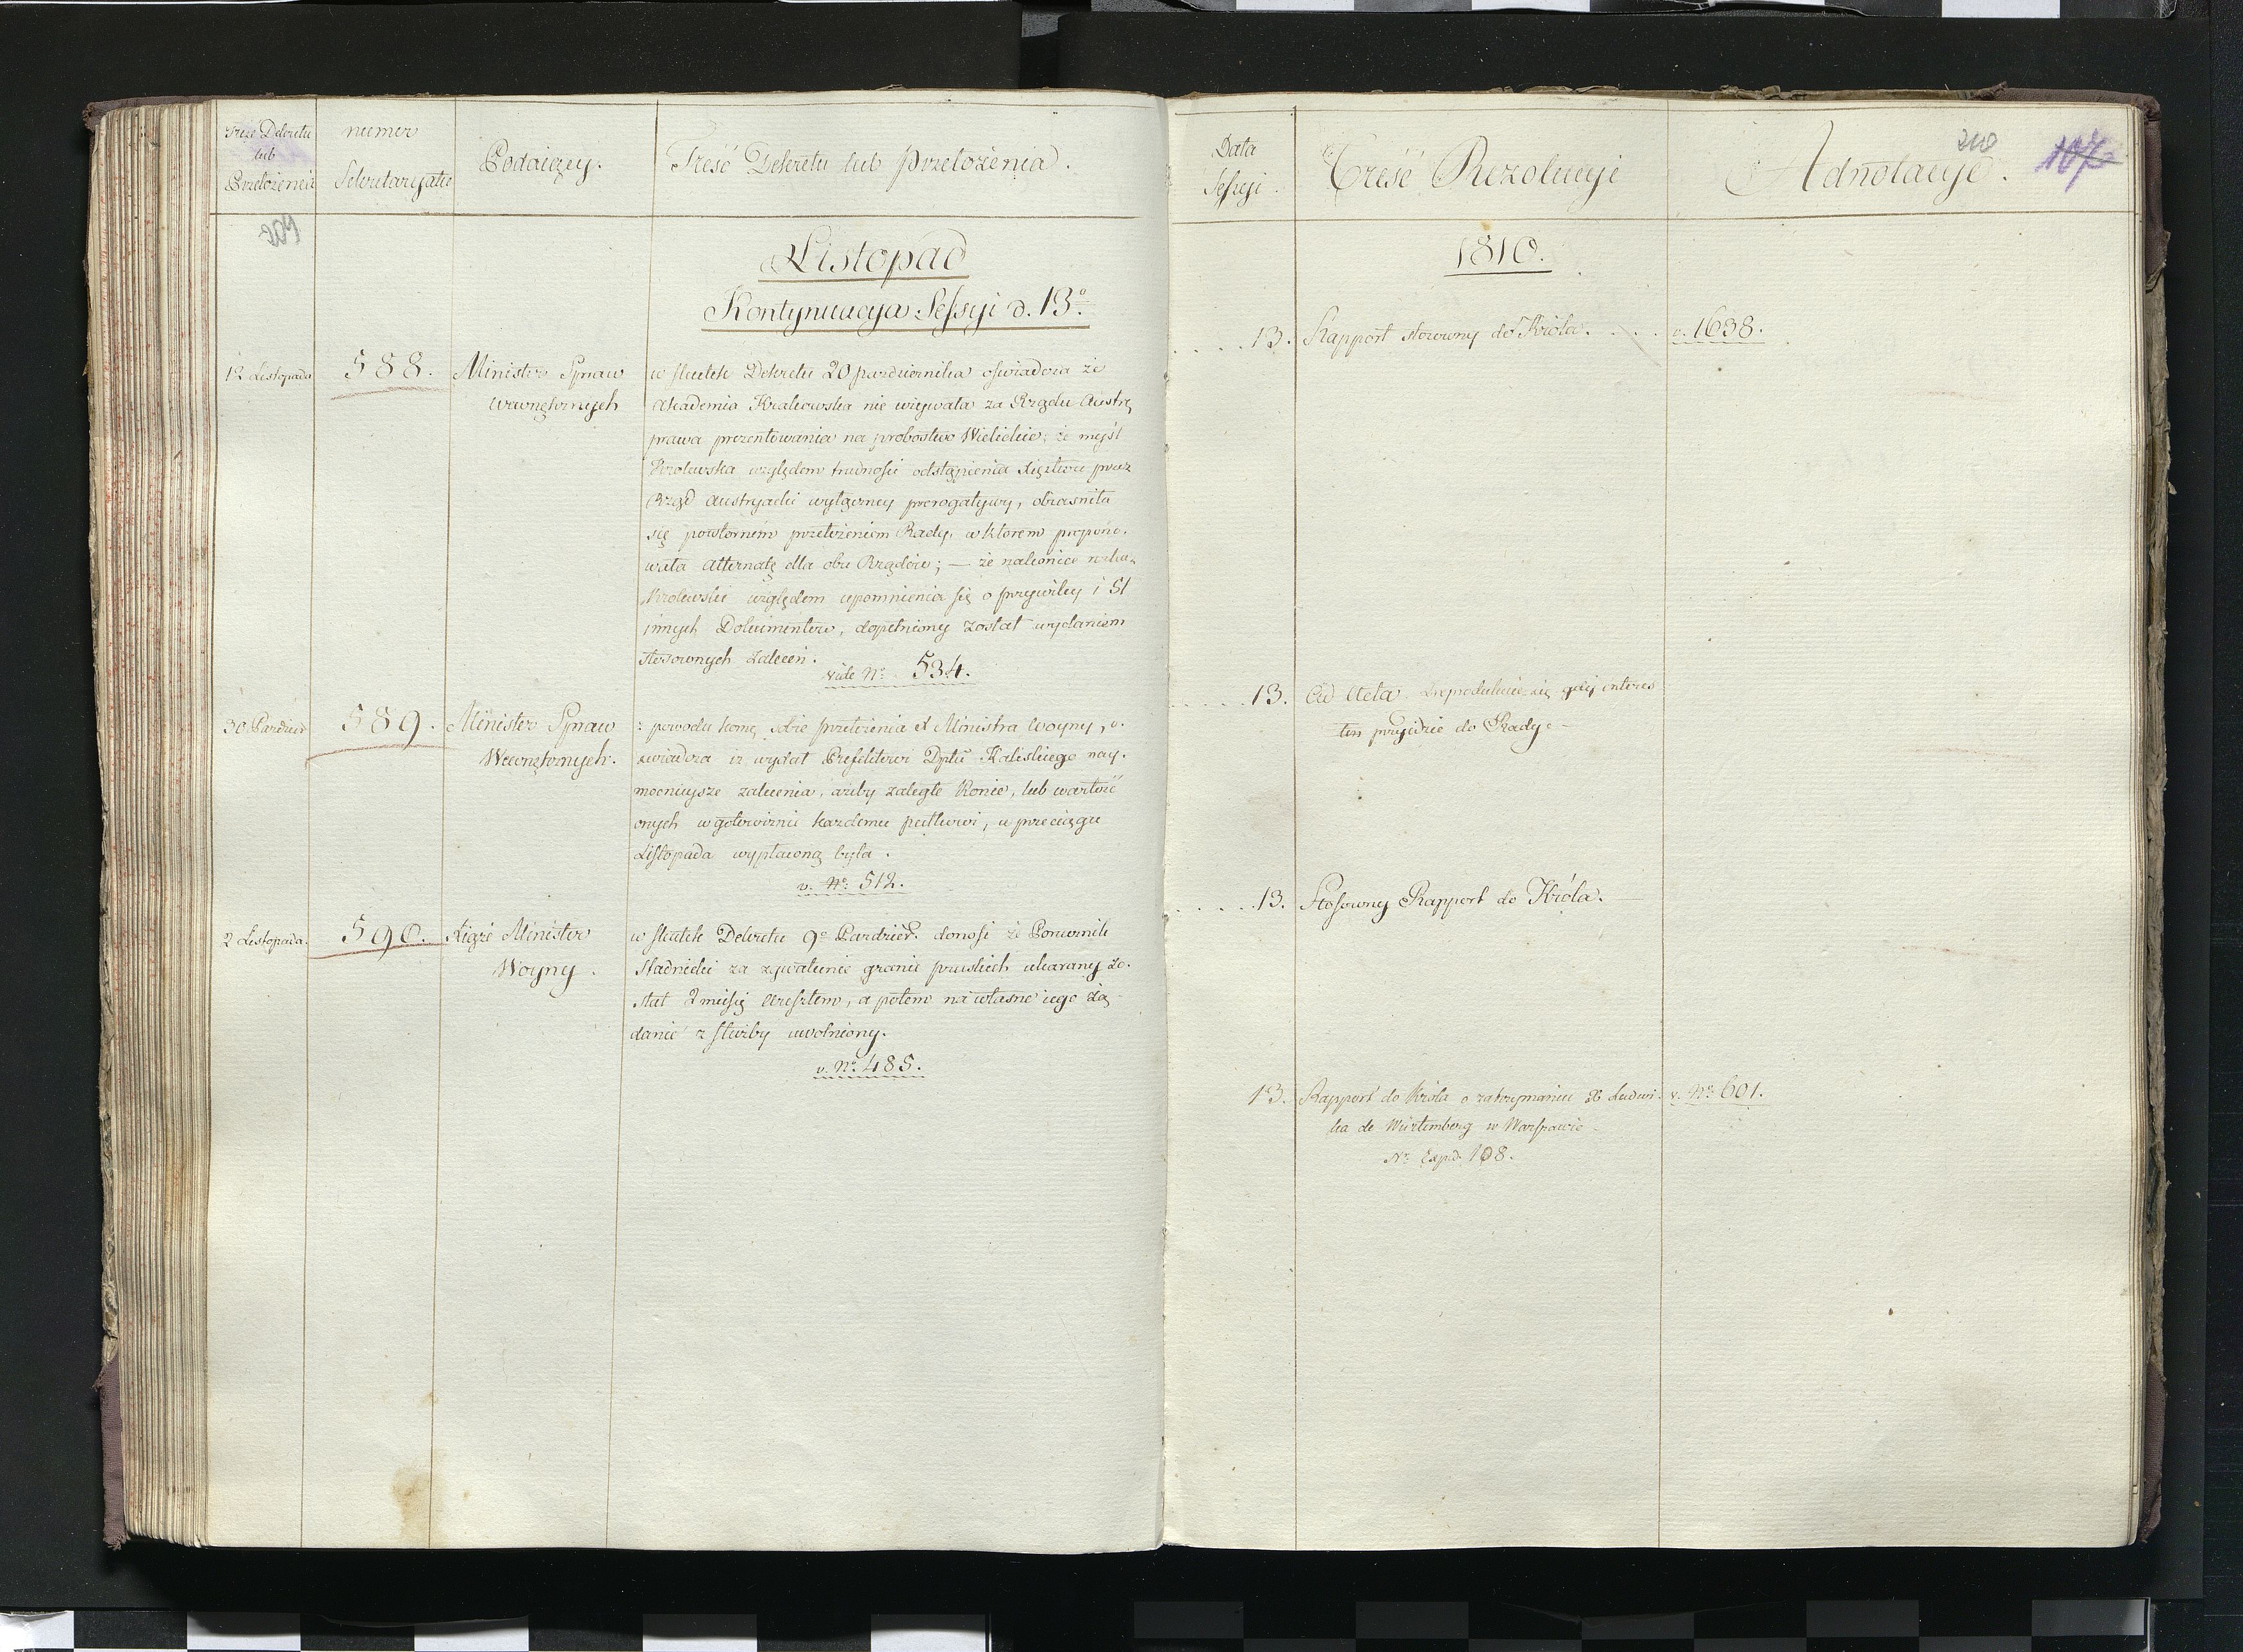 Treść Dekretu
lub
Przełożenia
numer
Sekretaryatu
Podaiący.
Treść Dekretu lub przełożenia.
Listopad
Kontynuacya Sessyi d. 13º
12 Listopada
588.
Minister Spraw
Wewnętrznych
w skutek Dekretu 20 października oświadcza że
Akademia Krakowska nie używała za Rządu Austr.
prawa prezentowania na probostwo Wielickie; że myśl
Krolewska względem trudności odstąpienia Xięztwu przez
Rząd Austryacki wyłączney prerogatywy, obiasniła
się powtornem przełożeniem Rady, w ktorem propono-
wała Alternatę dla obu Rządow; — że nakoniec
Krolewski względem upomnienia się o przywiley i 51
innych Dokumentow, dopełniony został wydaniem
stosownych zaleceń.
vide Nº 534.
30 Paździer
589.
Minister Spraw
Wewnętrznych.
z powodu kom. sobie przełożenia X Ministra Woyny, o-
swiadcza iż wydał Prefektowi Dptu Kaliskiego nay-
mocnieysze zalecenia, ażeby zaległe Konie, lub wartość
onych w gotowiznie każdemu pułkowi, w przeciągu
Listopada wypłaconą była.
v. Nº 512.
2 Listopada.
590.
Xiąże Minister
Woyny.
w skutek Dekretu 9º Paździer. donosi że Porucznik
Stadnicki za zgwałcenie granic pruskich ukarany zo-
stał 2 miesię aresztem, a potem na własne iego żą-
danie z służby uwolniony.
v. Nº 485.
Data
Sessyi.
Treść Rezolucyi
Adnotacye.
210
107
1810.
. . . . 13.
Rapport stosowny do Króla. . . .
v. 1638.
. . . . . 13.
Ad Acta. Zreprodukuie się gdy interes
ten przyidzie do Rady.
. . . . 13.
Stosowny Rapport do Króla.
13.
Rapport do Króla o zatrzymaniu X Ludwi-
ka de Würtemberg w Warszawie
Nº Exped. 108.
v. Nº 601.